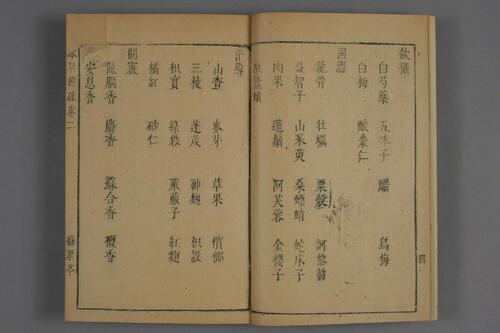 斂攝
白芍藥 五味子 醋 烏梅
白梅 酸棗仁
固澀
龍骨 牡蠣 粟殼 訶黎勒
益智子 山茱萸 桑螵蛸 蛇床子
肉果 蓮鬚 阿芙蓉 金櫻子
原蠶蛾
四
消導
山查 麥芽 草果 檳榔
三稜 蓬茂 神麯 枳殼
枳實 綠礬 萊菔子 紅麯
橘紅 砂仁
開竅
龍腦香 麝香 蘇合香 檀香
安息香
卷二
綠君亭